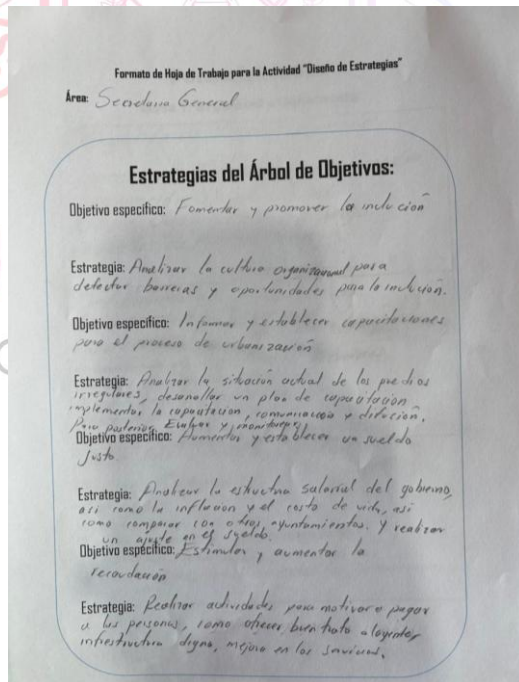 Formato de Hoja de Trabajo para la Actividad "Diseño de Estrategias"
Área: Secretaria General
Estrategias del Árbol de Objetivos:
Objetivo específico: Fomentar y promover la inclución
Estrategia: Analizar la cultura organizacional para
detectar barreras y oportunidades para la inclusión.
Objetivo específico: Informar y establecer capacitaciones
para el proceso de urbanización
Estrategia: Analizar la situación actual de los predios
irregulares, desarrollar un plan de capacitación
implementar la capacitación, comunicación y difución.
Para posterior Evaluar y monitorear
Objetivo específico: Aumentar y establecer un sueldo
Justo
Estrategia: Analizar la estructura salarial del gobierno,
asi como la inflación y el costo de vida, asi
como comparar con otros ayuntamientos. y realizar
un ajuste en el sueldo.
Objetivo específico: Estimular y aumentar la
recaudación
Estrategia: Realizar actividades para motivar a pagar
a las personas, como ofrecer buen trato a la gente,
infraestructura digna, mejora en los servicios.